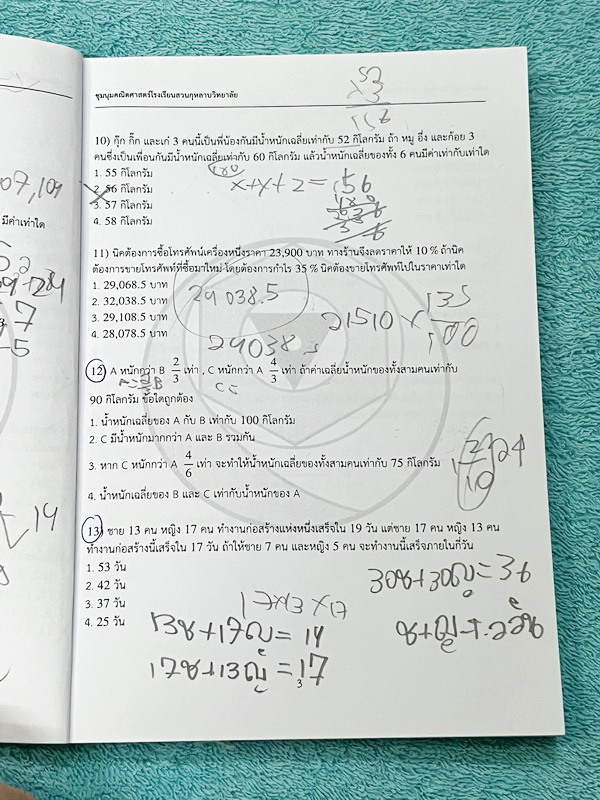 ชุมนุมคณิตศาสตร์โรงเรียนสวนกุหลาบวิทยาลัย
52
x 3
152
10) กุ๊ก กิ๊ก และเก๋ 3 คนนี้เป็นพี่น้องกันมีน้ำหนักเฉลี่ยเท่ากับ 52 กิโลกรัม ถ้า หมู อึ่ง และก้อย 3
คนซึ่งเป็นเพื่อนกันมีน้ำหนักเฉลี่ยเท่ากับ 60 กิโลกรัม แล้วน้ำหนักเฉลี่ยของทั้ง 6 คนมีค่าเท่ากับเท่าใด
180
1. 55 กิโลกรัม
x+y+z = 156
2. 56 กิโลกรัม
3. 57 กิโลกรัม
4. 58 กิโลกรัม
11) นิคต้องการซื้อโทรศัพท์เครื่องหนึ่งราคา 23,900 บาท ทางร้านจึงลดราคาให้ 10 % ถ้านิค
ต้องการขายโทรศัพท์ที่ซื้อมาใหม่ โดยต้องการกำไร 35 % นิคต้องขายโทรศัพท์ไปในราคาเท่าใด
1. 29,068.5 บาท
29038.5
2. 32,038.5 บาท
3. 29,108.5 บาท
21510 x 135
100
4. 28,078.5 บาท
29038
12) A หนักกว่า B 2/3 เท่า , C หนักกว่า A 4/3 เท่า ถ้าค่าเฉลี่ยน้ำหนักของทั้งสามคนเท่ากับ
90 กิโลกรัม ข้อใดถูกต้อง
1. น้ำหนักเฉลี่ยของ A กับ B เท่ากับ 100 กิโลกรัม
2. C มีน้ำหนักมากกว่า A และ B รวมกัน
3. หาก C หนักกว่า A 4/6 เท่า จะทำให้น้ำหนักเฉลี่ยของทั้งสามคนเท่ากับ 75 กิโลกรัม
4. น้ำหนักเฉลี่ยของ B และ C เท่ากับน้ำหนักของ A
13) ชาย 13 คน หญิง 17 คน ทำงานก่อสร้างแห่งหนึ่งเสร็จใน 19 วัน แต่ชาย 17 คน หญิง 13 คน
ทำงานก่อสร้างนี้เสร็จใน 17 วัน ถ้าให้ชาย 7 คน และหญิง 5 คน จะทำงานนี้เสร็จภายในกี่วัน
1. 53 วัน
30ช+30ญ = 36
2. 42 วัน
3. 37 วัน
17x13 x17
4. 25 วัน
13ช+17ญ = 19
17ช+13ญ = 17
3
107,109
มีค่าเท่าใด
19